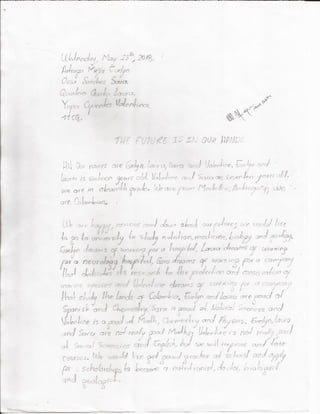 Wednesday, May 23th, 2018.
Arteaga Mejía Evelyn
Sánchez
Laura
Yepes Valentina
11°
THE FUTURE IS IN OUR HANDS
Hi! Our names are Evelyn, Laura, Sara and Valentina, Evelyn and
Laura is sixteen years old Valentina and Sara are seventeen years old.
we are in eleventh grade. We are from
are Colombians.
We are happy, nervous and about our future; we would like
to go to university to study nutrition, medicine, biology and geology,
Evelyn dreams of working for a hospital, Laura dreams of working
for a hospital, Sara dreams of working for a company
that dedicates its research to the protection and conservation of
and Valentina dreams of working for a company
that study the lands of Colombia, Evelyn and Laura are good at
Spanish and Chemistry, Sara is good at Natural sciences and
Valentina is a good at Math, Chemistry and Physics, Evelyn, Laura
and Sara are not really good Maths, Valentina is not really good
at Social Sciences and English, but we will improve and take
courses. We would like get good grades at school and apply
for scholarships to become a nutritionist, doctor, biologist
and geologist.